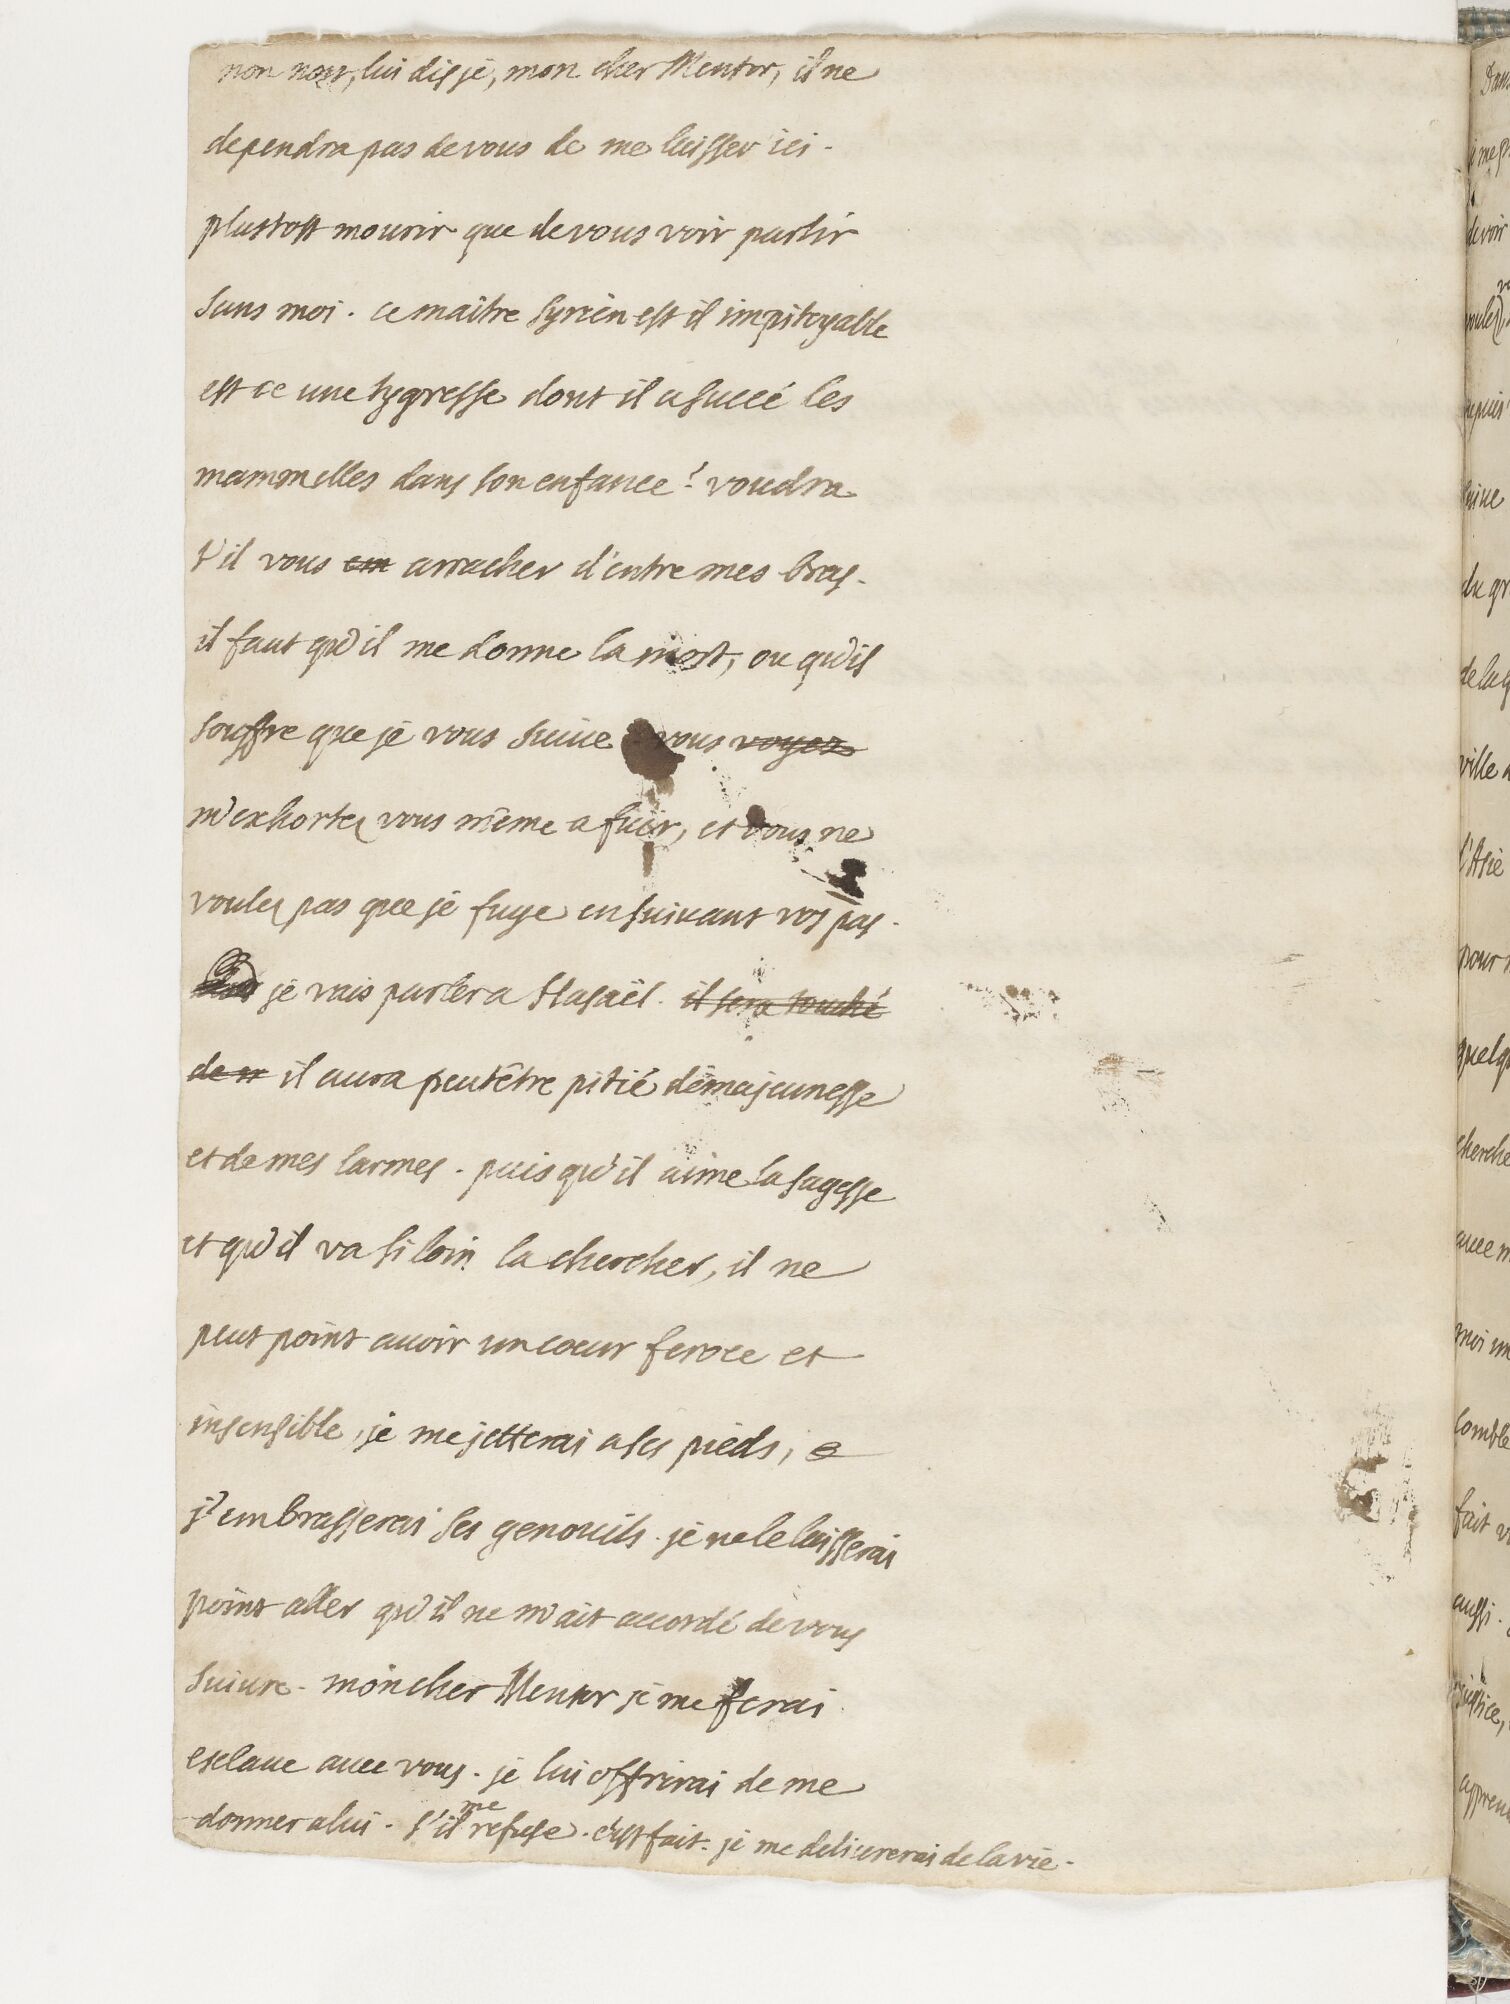 non non, lui dis je, mon cher Mentor, il ne
dependra pas de vous de me laisser ici.
plustost mourir que de vous voir partir
sans moi. ce maitre syrien est il impitoyable
est ce une tygresse dont il a succé les
mammelles dans son enfance? voudra
t'il vous em arracher d'entre mes bras.
il faut qu'il me donne la mort, ou qu'il
souffre que je vous suive. vous voyez
m'exhortez vous même a fuir, et vous ne
voulez pas que je fuye en suivant vos pas.
je vais parler a Hasaël. il sera touché
de m il aura peutêtre pitié de ma jeunesse
et de mes larmes. puis qu'il aime la sagesse
et qu'il va si loin la chercher, il ne
peut point avoir un coeur feroce et
insensible, je me jetterai a ses pieds, e
j'embrasserai ses genouils. je ne le laisserai
point aller qu'il ne m'ait accordé de vous
suivre. mon cher Mentor je me ferai
esclave avec vous. je lui offrirai de me
donner a lui. s'il me refuse. c'est fait. je me delivrerai de la vie.
Dans
devoir
voulez
puis
du gr
de la q
ville
l'Asie
pour
quelqu
cherche
avec m
moi un
comble
fait v
aussi.